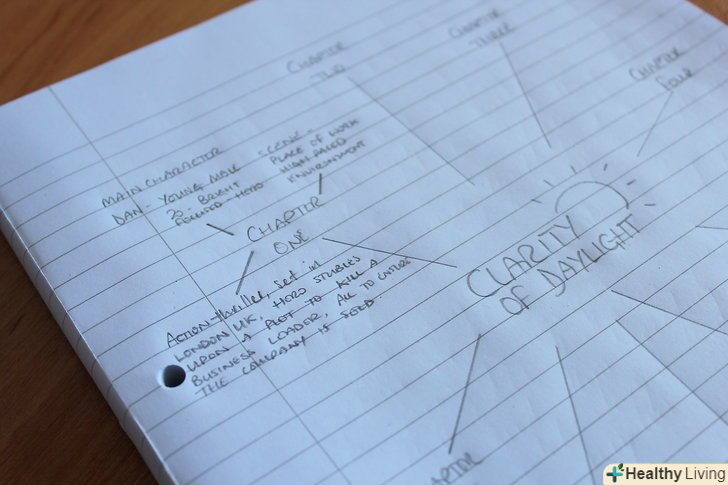 CHAPTER
TWO
CHAPTER
THREE
CHAPTER
FOUR
MAIN CHARACTER
DAN - YOUNG, MALE
20 - BRIGHT
FOCUSED - HERO
SCENE -
PLACE OF WORK
HIGH PACED
ENVIRONMENT
CHAPTER
ONE
CLARITY
OF DAYLIGHT
Action-thriller, set in
LONDON UK, HERO STUBLES
UPON A PLOT TO KILL A
BUSINESS LEADER, ALL TO
THE COMPANY IS
Healthy Living